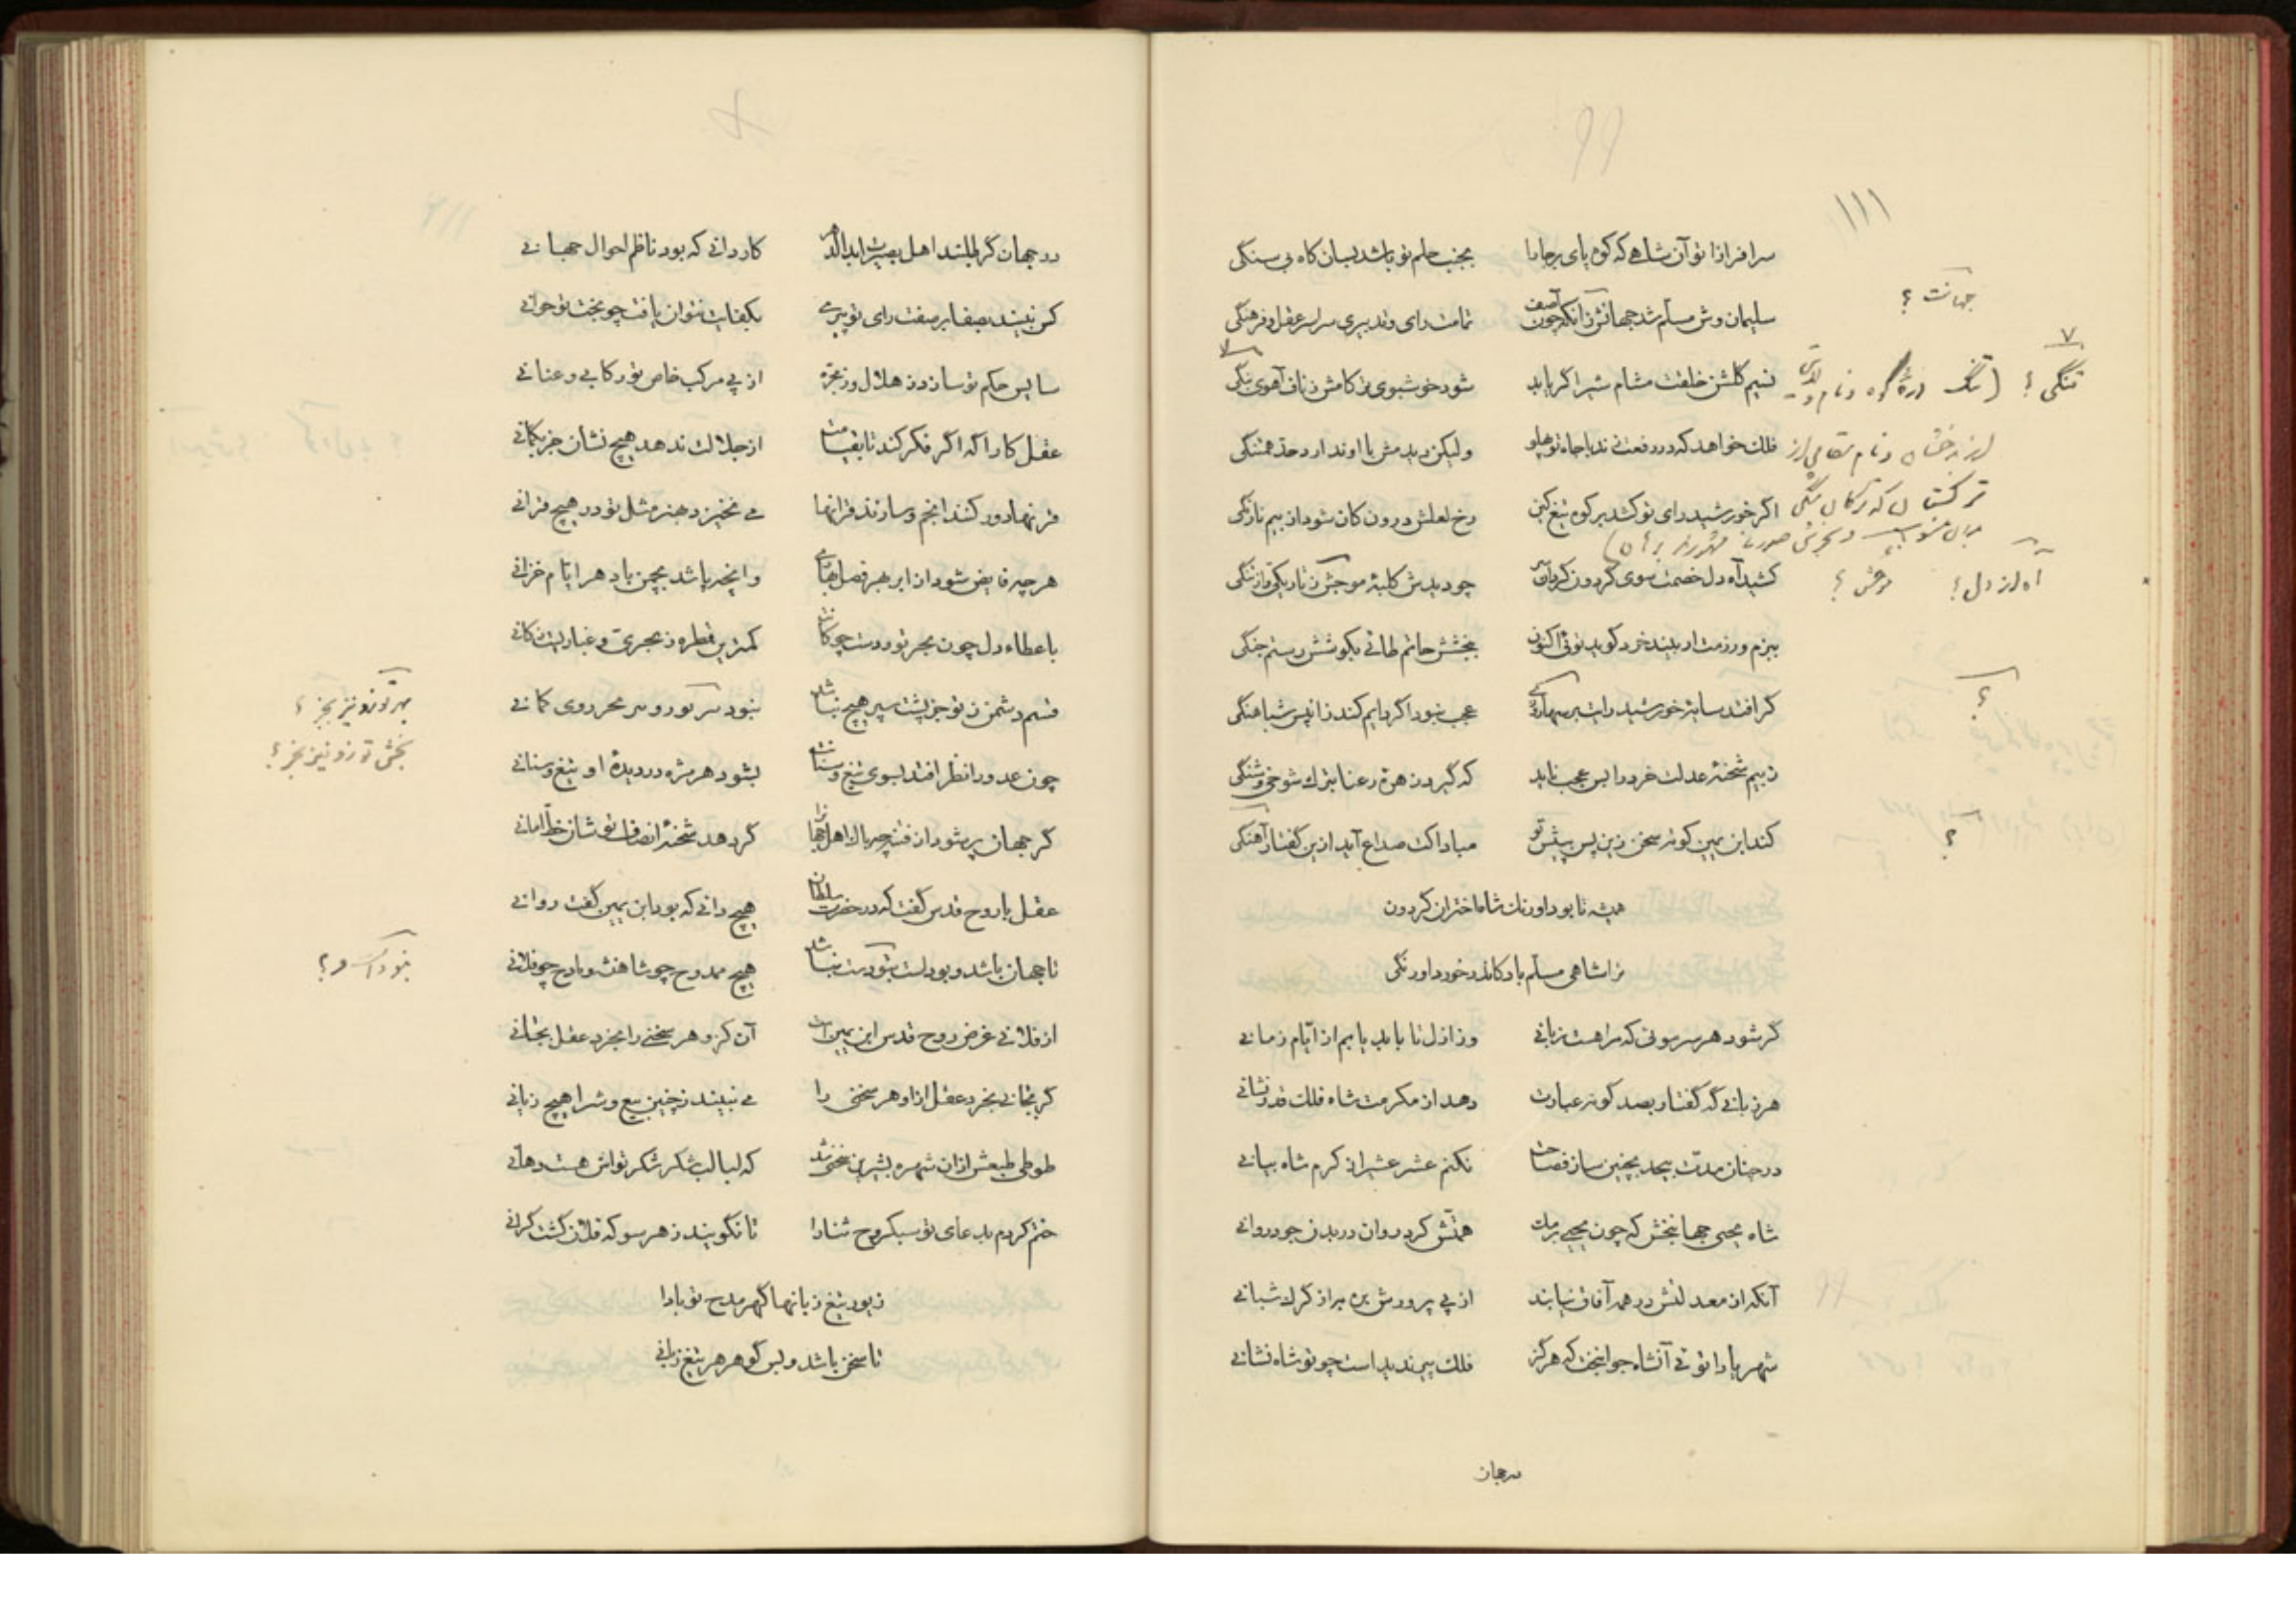 ۱۱۱
سرافرازا تو آن شاهی که کوه پای برجا را بجنب حلم تو باشد بسان کاه بی سنگی
سلیمان وش مسلم شد جهانش زانکه چون آصف تمامت رای و تدبیری سراسر عقل و فرهنگی
جهانت ؟
نسیم گلشن خلقت مشام شیر اگر یابد شود خوشبوی تر کامش ز ناف آهوی تنگی
تنگی ؟
فلک خواهد که در رفعت زند با جاه تو پهلو ولیکن دیدمش با او ندارد حد همتنگی
اگر خورشید رای تو کشد بر کوه تیغ کین رخ لعلش درون کان شود از بیم نارنگی
کشید آه دل خصمت سوی گردون گردان سر چو دیدش کلبه موحش ز تاریکی و از تنگی
آه از دل ؟
ببزم و رزمت ار بیند خرد گوید توئی اکنون ببخشش حاتم طائی بکوشش رستم جنگی
گر افتد سایه خورشید رایت بر سها عجب نبود اگر دایم کند زانپس شباهنگی
؟
ز بیم شحنه عدلت خرد را بس عجب ناید که گیرد زهره رعنا بترک شوخی و شنگی
کند ابن یمین کوته سخن زین پس به پیش تو مبادا کت صداع آید ازین گفتار آهنگی
؟
همیشه تا بود اورنگ شاها اختران گردون
ترا شاهی مسلم باد کاندر خورد اورنگی
گر شود هر سر موئی که مرا هست زبانی وز ازل تا بابد یابم از ایام زمانی
هر زبانی که گفتار بصد گونه عبارت دهد از مکرمت شاه فلک قدر نشانی
در چنان مدت بیحد بچنین ساز فصاحت نکنم عشر عشیر از کرم شاه بیانی
شاه یحیی جهانبخش که چون یحیی برمک همتش کرد روان در بدن جود روانی
آنکه از معدلتش در همه آفاق نیابند از پی پرورش بره به از گرگ شبانی
شهریارا تو ئی آنشاه جوانبخت که هرگز فلک پیر ندیدست چو تو شاه نشانی
در جهان
در جهان گر طلبند اهل بصیرت ابد الدهر کاردانی که بود ناظم احوال جهانی
کس نبیند بصفا بر صفت رای تو پیری بکفایت نتوان یافت چو بخت تو جوانی
سایس حکم تو سازد ز هلال و ز مجره از پی مرکب خاص تو رکابی و عنانی
عقل کاراگه اگر فکر کند تا بقیامت از جلالت ندهد هیچ نشان جز بگمانی
قرنها دور کنند انجم و سازند قرانها می نخیزد بهنر مثل تو در هیچ قرانی
هر چه فایض شود از ابر بهر فصل بهاری وانچه پاشد بچمن باد هر ایام خزانی
با عطاء دل چون بحر تو و دست چو کانت کمترین قطره ز بحری و غباریست ز کانی
قسم دشمن ز تو جز پشت سپر هیچ نباشد
چون عدو را نظر افتد بسوی تیغ و سنانت بشود هر مژه در دیده او تیغ و سنانی
گر جهان پر شود از فتنه چه باک اهل جهان را گر دهد شحنه انصاف تو شان خط امانی
عقل با روح قدس گفت که در حضرت سلطان هیچ دانی که بود ابن یمین گفت روانی
تا جهان باشد و بودست نبودست و نباشد هیچ ممدوح چو شاهنشه و مادح چو فلانی
از فلانی غرض روح قدس ابن یمین است آن کزو هر سخنی را بخرد عقل بجانی
گر بجانی بخرد عقل ازو هر سخنی را می نبیند ز چنین بیع و شرا هیچ زیانی
طوطی طبعش از ان شهره بشیرین سخنی شد که لبالب شکر شکر تواش هست دهانی
ختم کردم بدعای تو سبکروح ثنا را تا نگویند ز هر سو که فلان گشت گرانی
زیور تیغ زبانها گهر مدح تو بادا
تا سخن باشد و بس گوهر هر تیغ زبانی